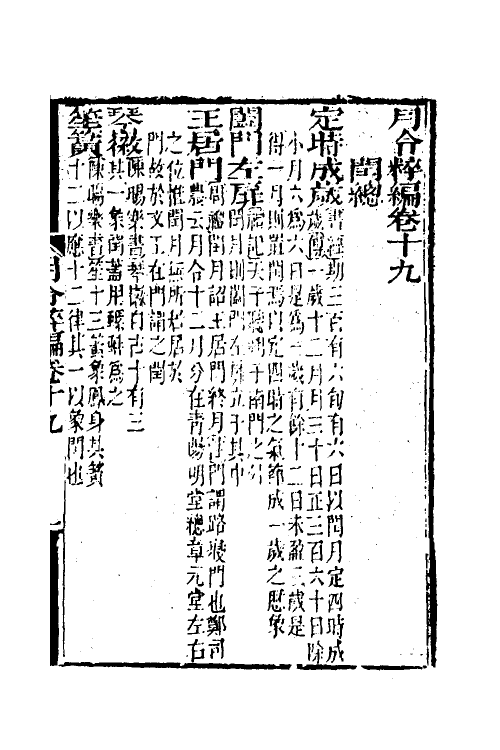 月令粹編卷十九
閏總
定時成歲書經朞三百有六旬有六日以閏月定四時成
歲傳一歲十二月月三十日正三百六十日除
小月六爲六日是爲一歲有餘十二日未盈三歲足
得一月則置閏焉以定四時之氣節成一歲之曆象
闔門左扉禮記天子聽朔于南門之外
閏月則闔門左扉立于其中
王居門周禮閏月詔王居門終月註門謂路寢門也鄭司
農云月令十二月分在靑陽明堂總章元堂左右
之位惟閏月無所居居於
門故於文王在門謂之閏
琴徽陳暘樂書琴徽自古十有三
其一象閏蓋用螺蚌爲之
笙簧陳暘樂書笙十三簧象鳳身其簧
十二以應十二律其一以象閏也
月令粹編卷十九